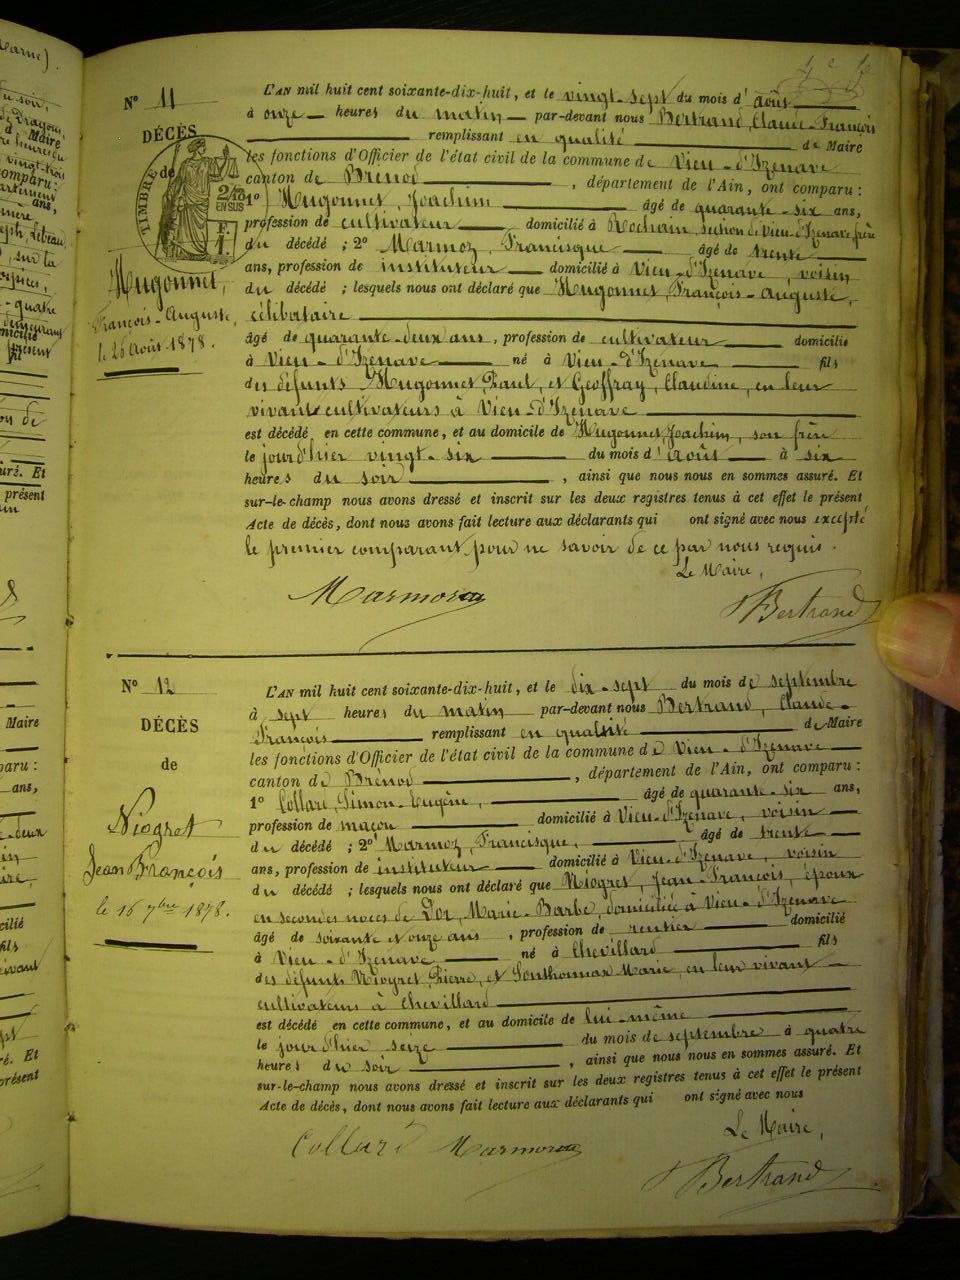 4e f
N° 11
DÉCÈS
de
TIMBRE
2/10
EN SUS
Hugonnet,
François-Auguste,
le 26 août 1878.
L'AN mil huit cent soixante-dix-huit, et le vingt-sept du mois d'août
à onze heures du matin par-devant nous Bertrand, Claude-François
remplissant en qualité de Maire
les fonctions d'Officier de l'état civil de la commune de Vieu-d'Izenave
canton de Brénod, département de l'Ain, ont comparu :
1° Hugonnet, Joachim âgé de quarante-six ans,
profession de cultivateur domicilié à Rochain, section de Vieu-d'Izenave, frère
du décédé ; 2° Marmoz, Francisque âgé de trente
ans, profession de instituteur domicilié à Vieu-d'Izenave, voisin
du décédé ; lesquels nous ont déclaré que Hugonnet, François-Auguste,
célibataire
âgé de quarante-deux ans, profession de cultivateur domicilié
à Vieu-d'Izenave né à Vieu-d'Izenave fils
des défunts Hugonnet, Paul, et Geoffray, Claudine, en leur
vivant cultivateurs à Vieu-d'Izenave
est décédé en cette commune, et au domicile de Hugonnet, Joachim, son frère
le jour d'hier vingt-six du mois d'août à six
heures du soir, ainsi que nous nous en sommes assuré. Et
sur-le-champ nous avons dressé et inscrit sur les deux registres tenus à cet effet le présent
Acte de décès, dont nous avons fait lecture aux déclarants qui ont signé avec nous excepté
le premier comparant pour ne savoir de ce par nous requis.
Le Maire,
Marmoz Bertrand
N° 12
DÉCÈS
de
Niogret
Jean François
le 16 7bre 1878.
L'AN mil huit cent soixante-dix-huit, et le dix-sept du mois de septembre
à sept heures du matin par-devant nous Bertrand, Claude-
François remplissant en qualité de Maire
les fonctions d'Officier de l'état civil de la commune de Vieu-d'Izenave
canton de Brénod, département de l'Ain, ont comparu :
1° Collard, Simon-Eugène, âgé de quarante-six ans,
profession de maçon domicilié à Vieu-d'Izenave, voisin
du décédé ; 2° Marmoz, Francisque, âgé de trente
ans, profession de instituteur domicilié à Vieu-d'Izenave, voisin
du décédé ; lesquels nous ont déclaré que Niogret, Jean-François, époux
en secondes noces de Dor, Marie-Barbe, domiciliée à Vieu-d'Izenave
âgé de soixante et onze ans, profession de rentier domicilié
à Vieu-d'Izenave, né à Chevillard fils
des défunts Niogret, Pierre, et Sonthonnax Marie, en leur vivant
cultivateurs à Chevillard
est décédé en cette commune, et au domicile de lui-même
le jour d'hier seize du mois de septembre à quatre
heures du soir, ainsi que nous nous en sommes assuré. Et
sur-le-champ nous avons dressé et inscrit sur les deux registres tenus à cet effet le présent
Acte de décès, dont nous avons fait lecture aux déclarants qui ont signé avec nous
Le Maire,
Collard Marmoz
Bertrand